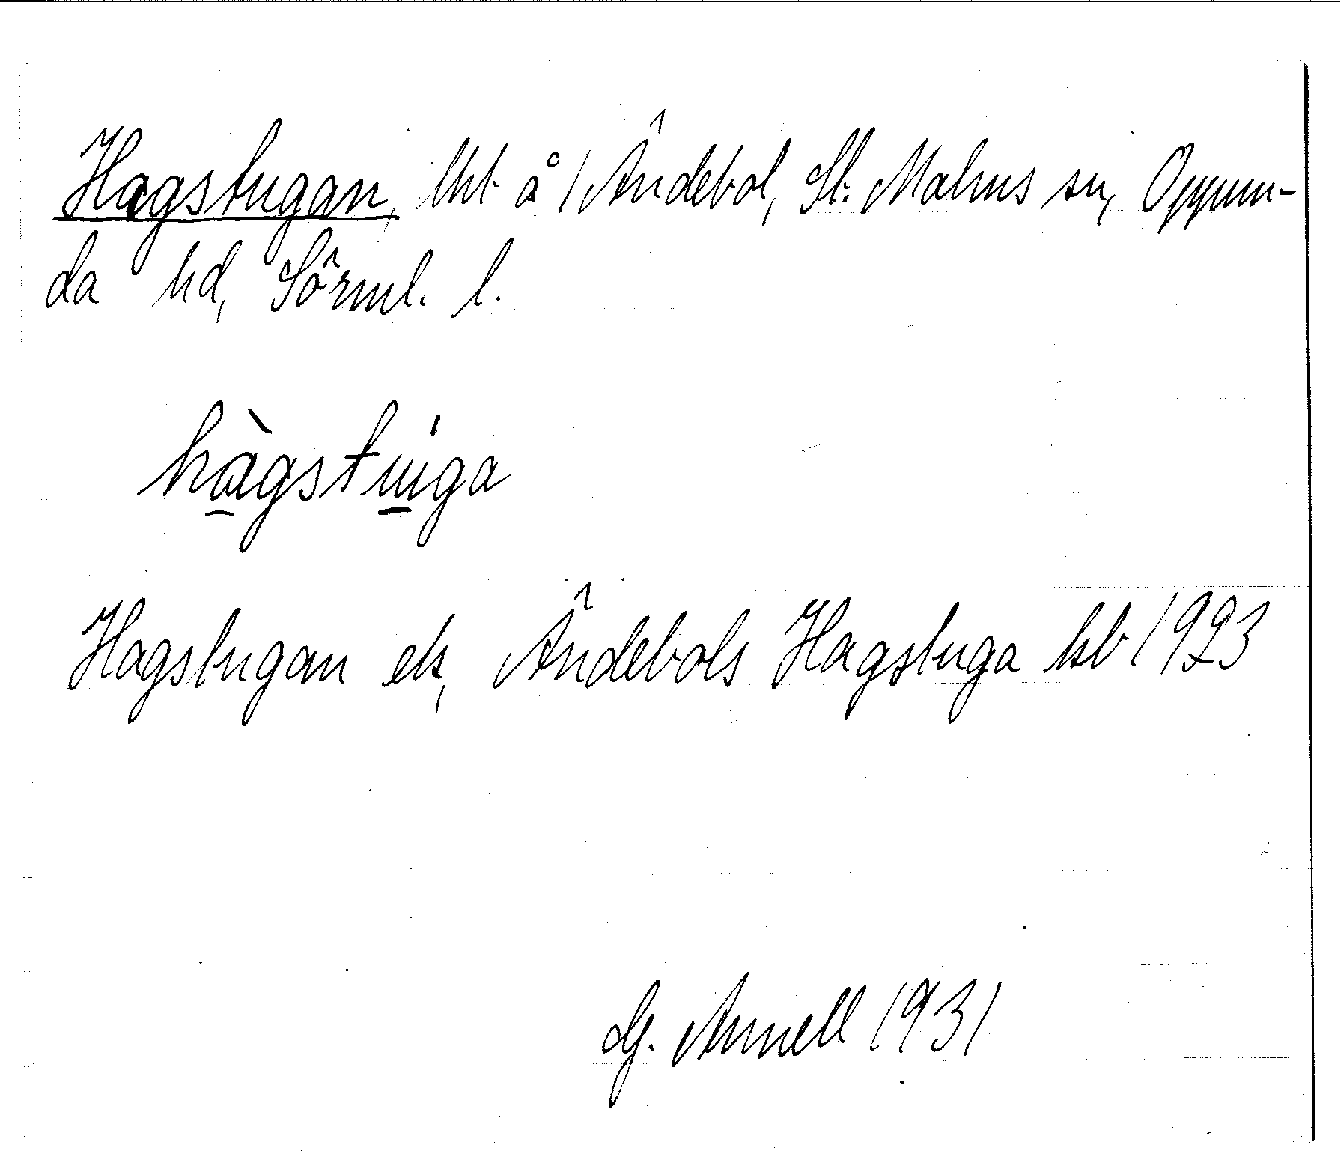 Hagstugan, lht å 1 Ändebol, St. Malms sn, Oppun-
da hd, Sörml. l.
hàgstúga
Hagstugan ek, Ändebols Hagstuga kb 1923
G. Annell 1931